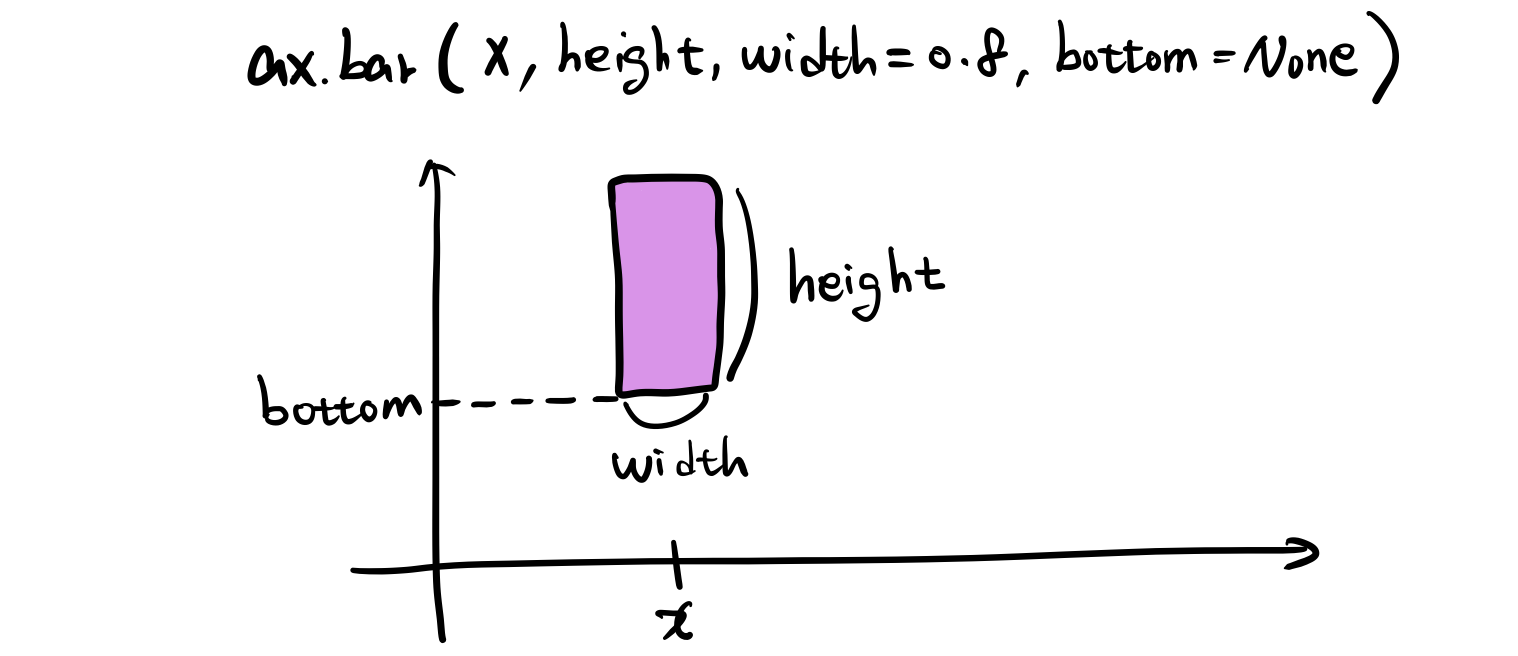 ax.bar( x, height, width=0.8, bottom=None)
height
bottom
width
x